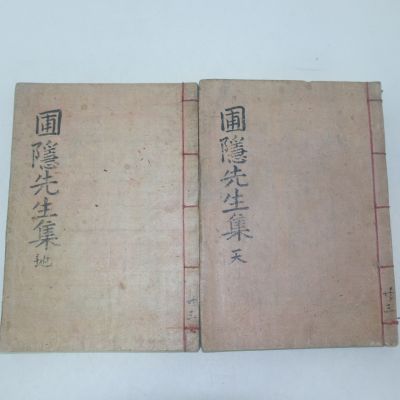 圃隱先生集
地
圃隱先生集
天